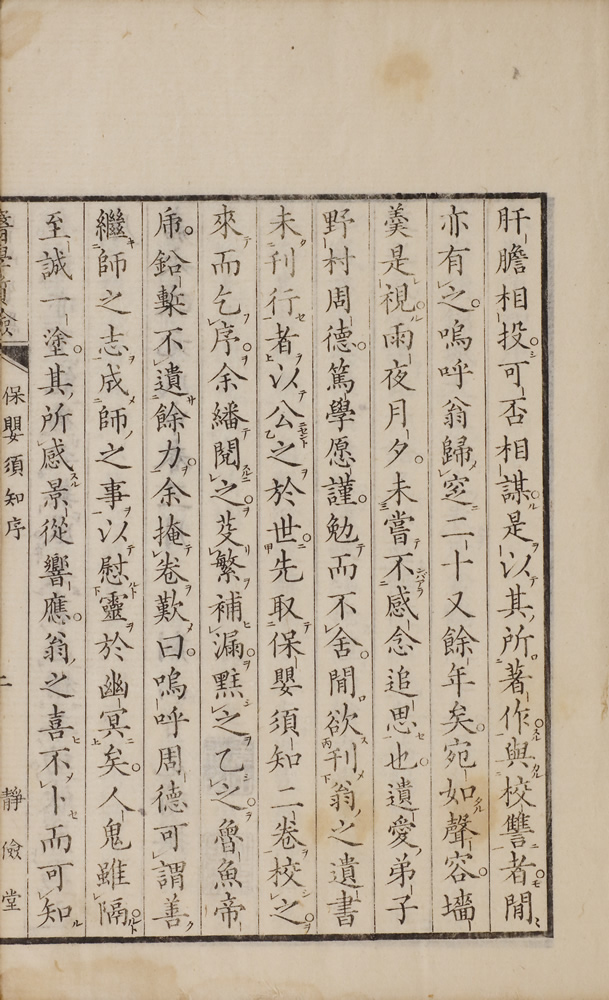 肝膽相投可否相謀是以其所著作與校讐者閒
亦有之嗚呼翁歸窆二十又餘年矣宛如聲容墻
羹是視雨夜月夕未嘗不感念追思也遺愛弟子
野村周德篤學愿謹勉而不舍閒欲刊翁之遺書
未刊行者以公之於世先取保嬰須知二卷校之
來而乞序余繙閱之芟繁補漏黑之乙之魯魚帝
乕鉛槧不遺餘力余掩卷歎曰嗚呼周德可謂善
繼師之志成師之事以慰靈於幽冥矣人鬼雖隔
至誠一塗其所感景從響應翁之喜不卜而可知
保嬰須知序
靜儉堂